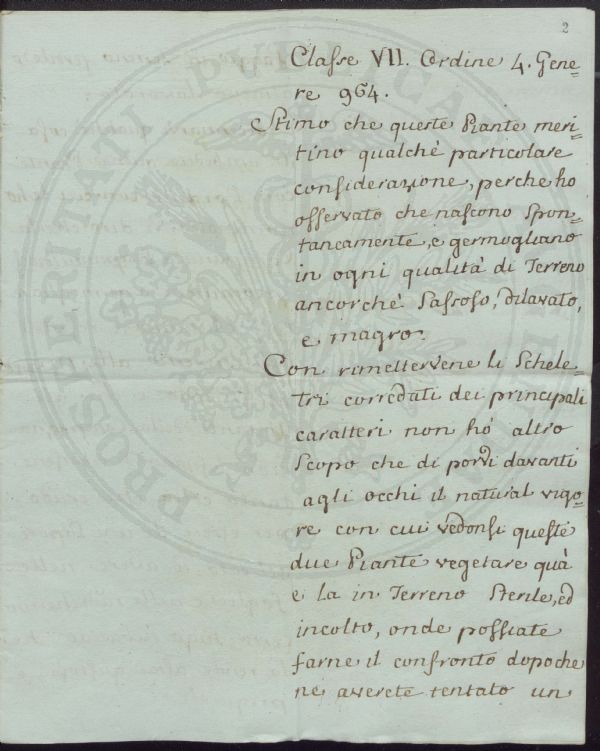 2
Classe VII. Ordine 4. Gene=
re 964.
Stimo che queste Piante meri=
tino qualchè particolare
considerazione, perche ho
osservato che nascono spon=
taneamente, e germogliano
in ogni qualità di Terreno
ancorchè Sassoso, dilavato,
e magro.
Con rimettervene li Schele=
tri corredati dei principali
caratteri non hò altro
scopo che di porvi davanti
agli occhi il natural vigo=
re con cui vedonsi queste
due Piante vegetare quà
e là in Terreno Sterile, ed
incolto, onde possiate
farne il confronto dopoche
ne averete tentato un
PROSPERITATI PUBLICAE